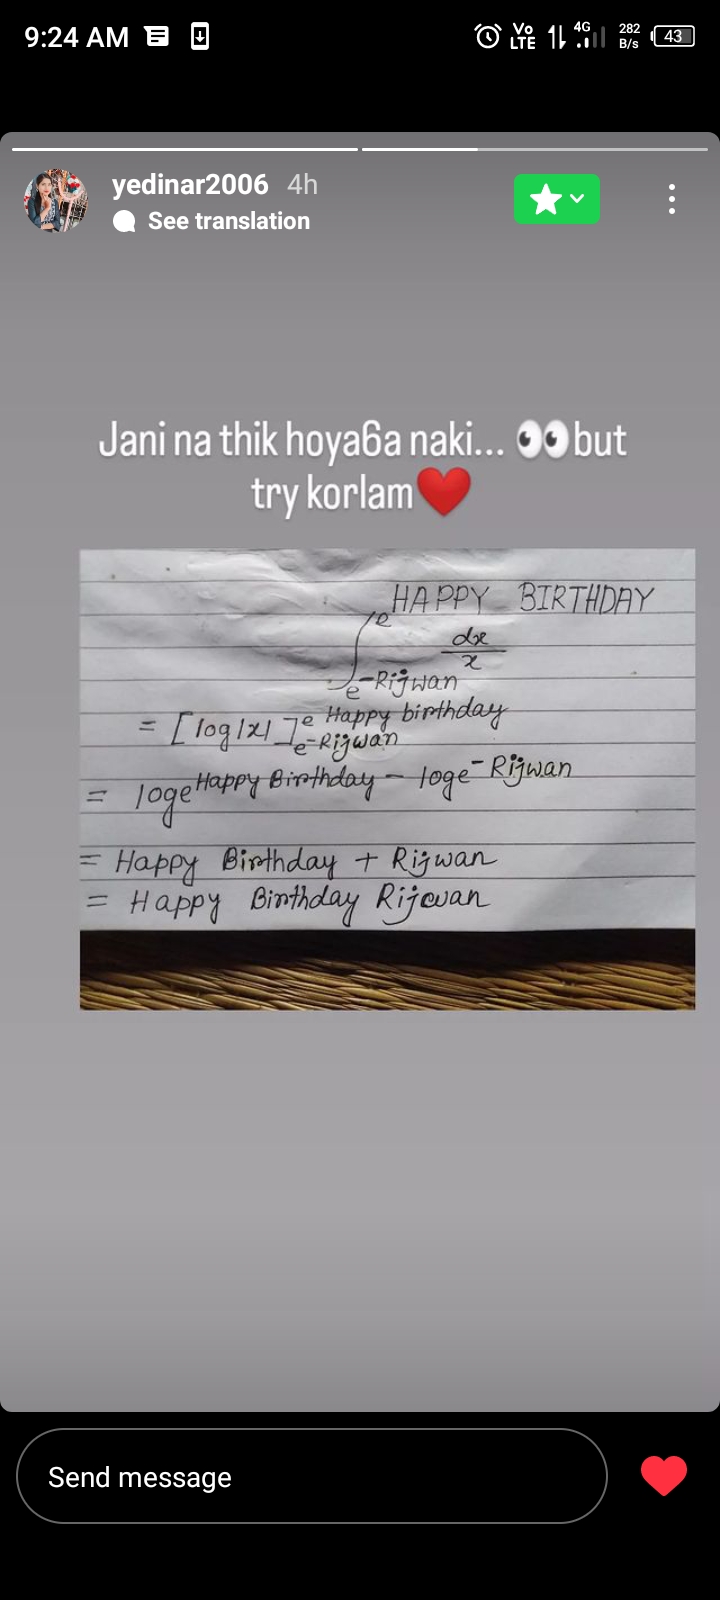 9:24 AM Vo LTE 4G 282 B/s 43
yedinar2006 4h
See translation
Jani na thik hoyaба naki... 👀but
try korlam❤️
HAPPY BIRTHDAY
∫ e dx/x
e -Rijwan
= [log|x|]e Happy birthday
e-Rijwan
= loge Happy Birthday - loge - Rijwan
= Happy Birthday + Rijwan
= Happy Birthday Rijwan
Send message